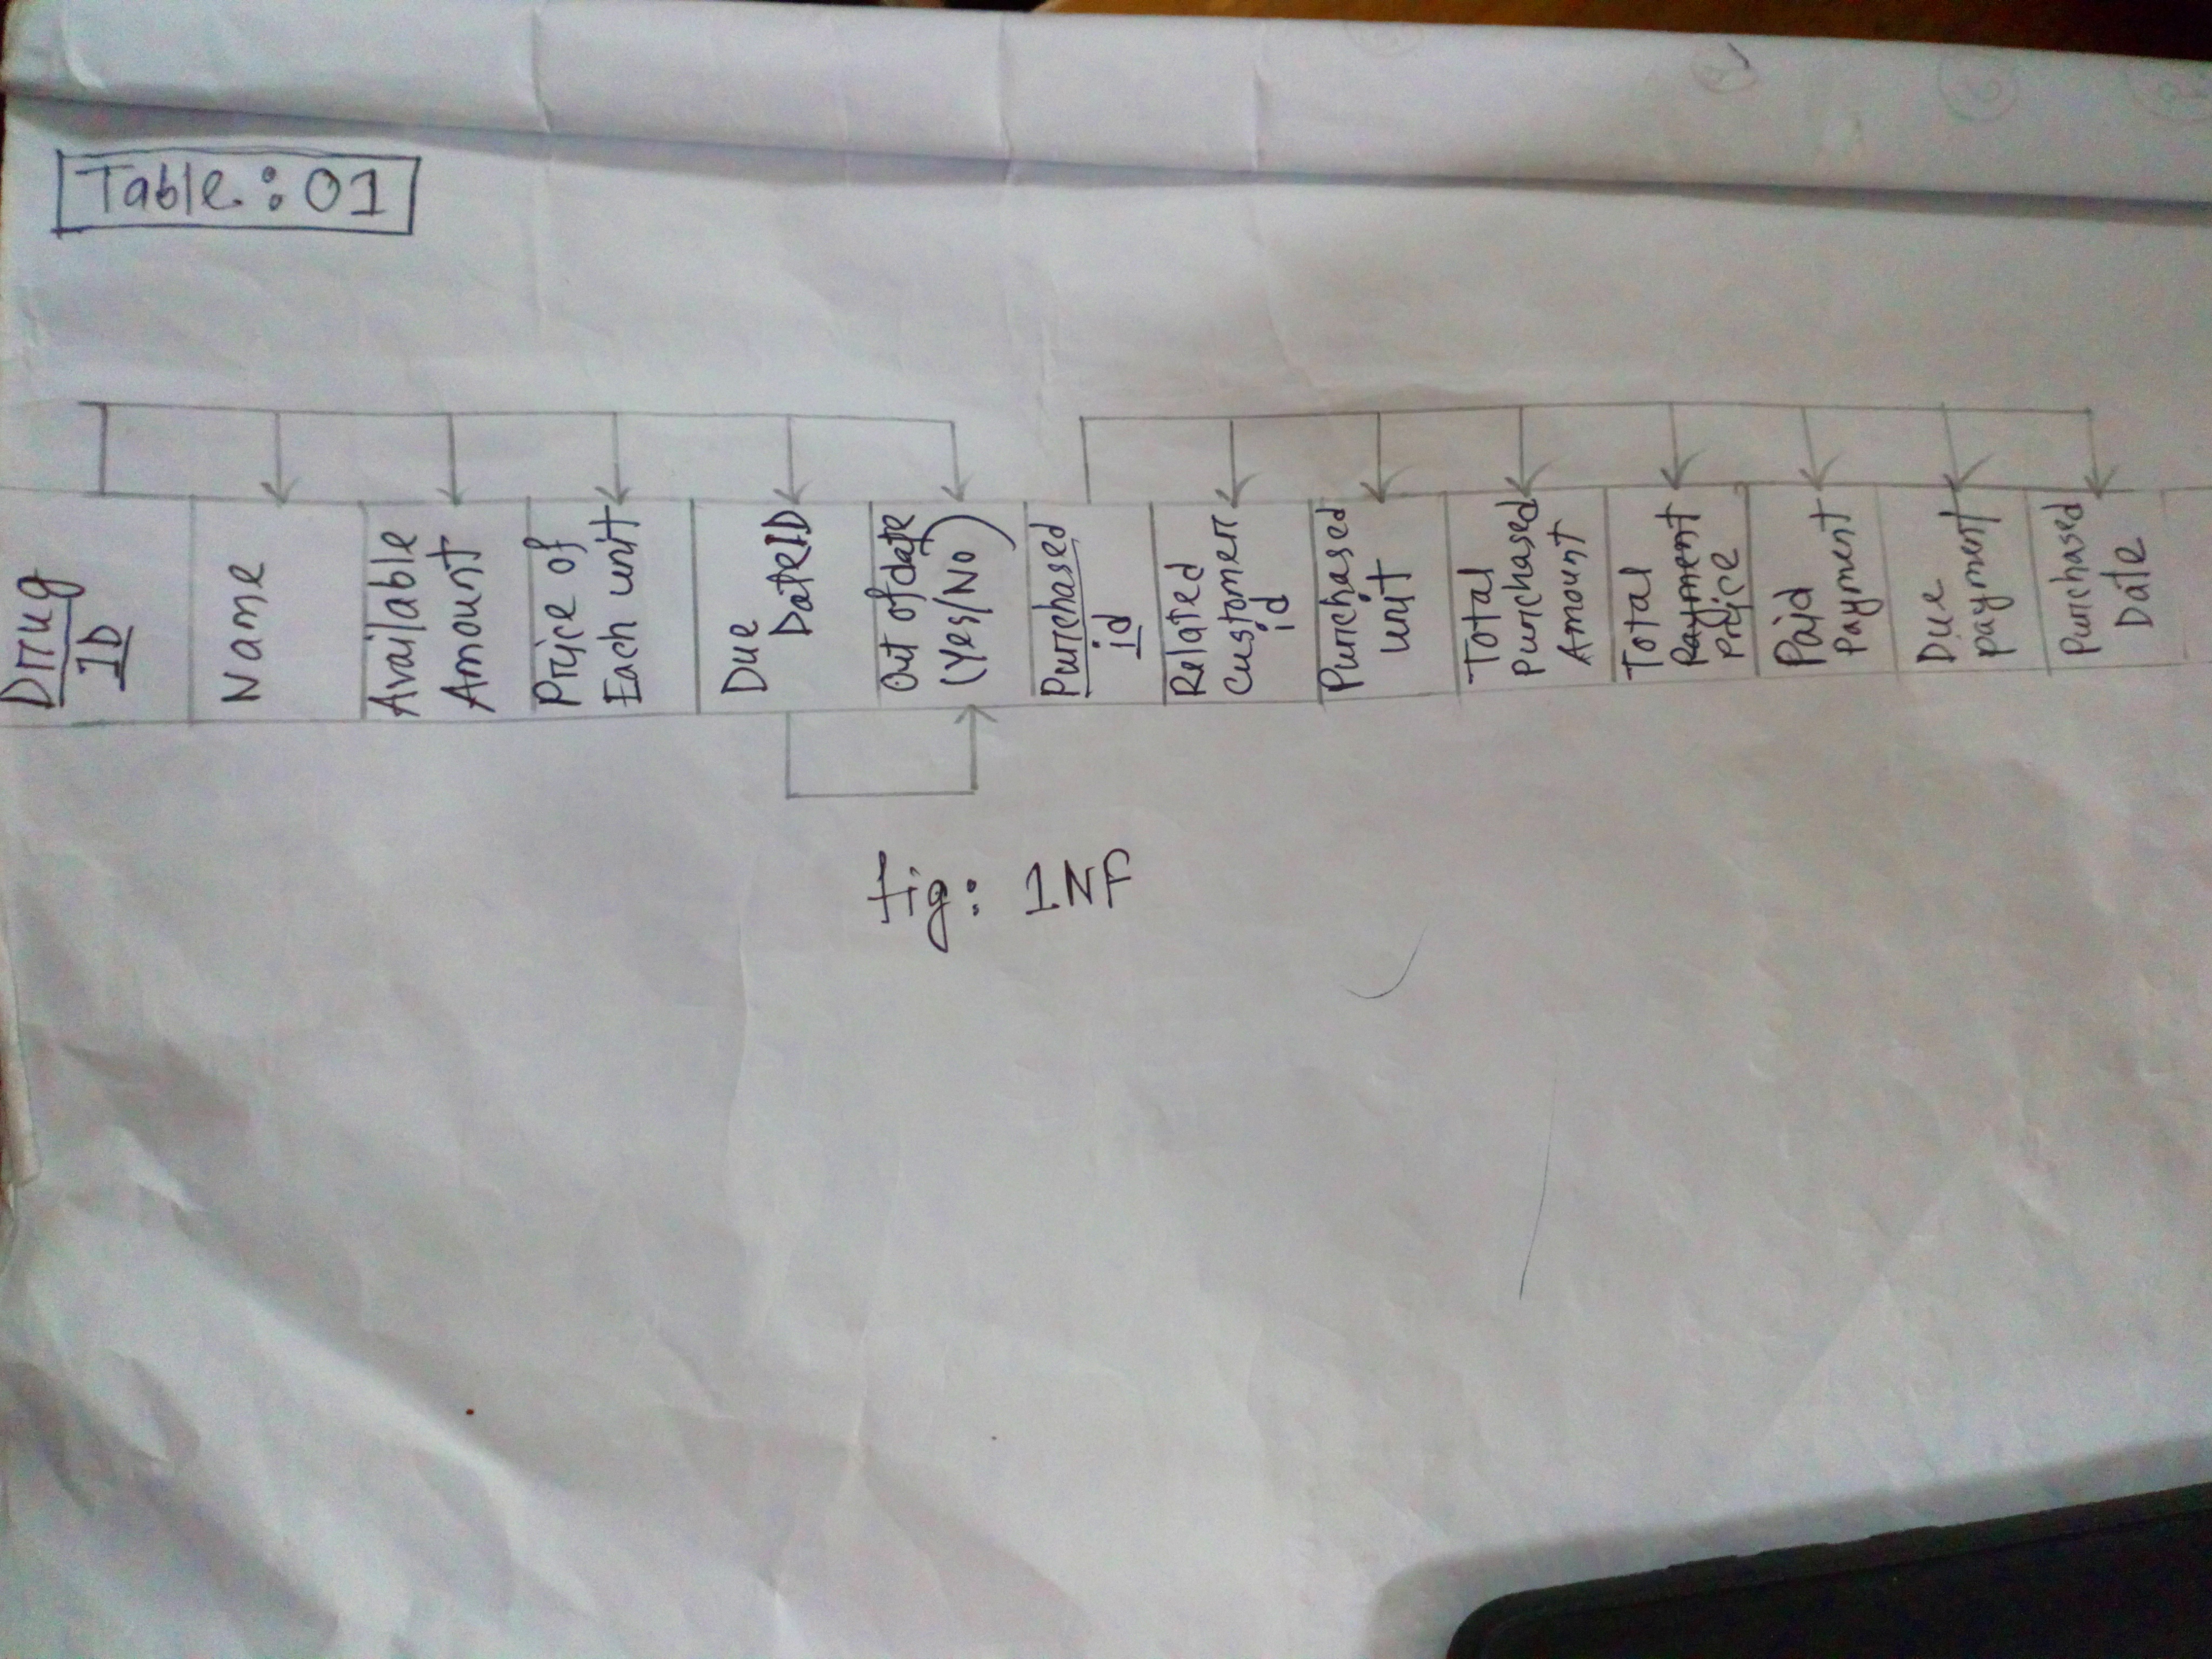 Table : 01
Drug
ID
Name
Available
Amount
Price of
Each unit
Due
DateID
Out of date
(Yes/No)
Purchased
id
Related
Customer
id
Purchased
unit
Total
Purchased
Amount
Total
Payment
Price
Paid
Payment
Due
payment
Purchased
Date
fig: 1NF